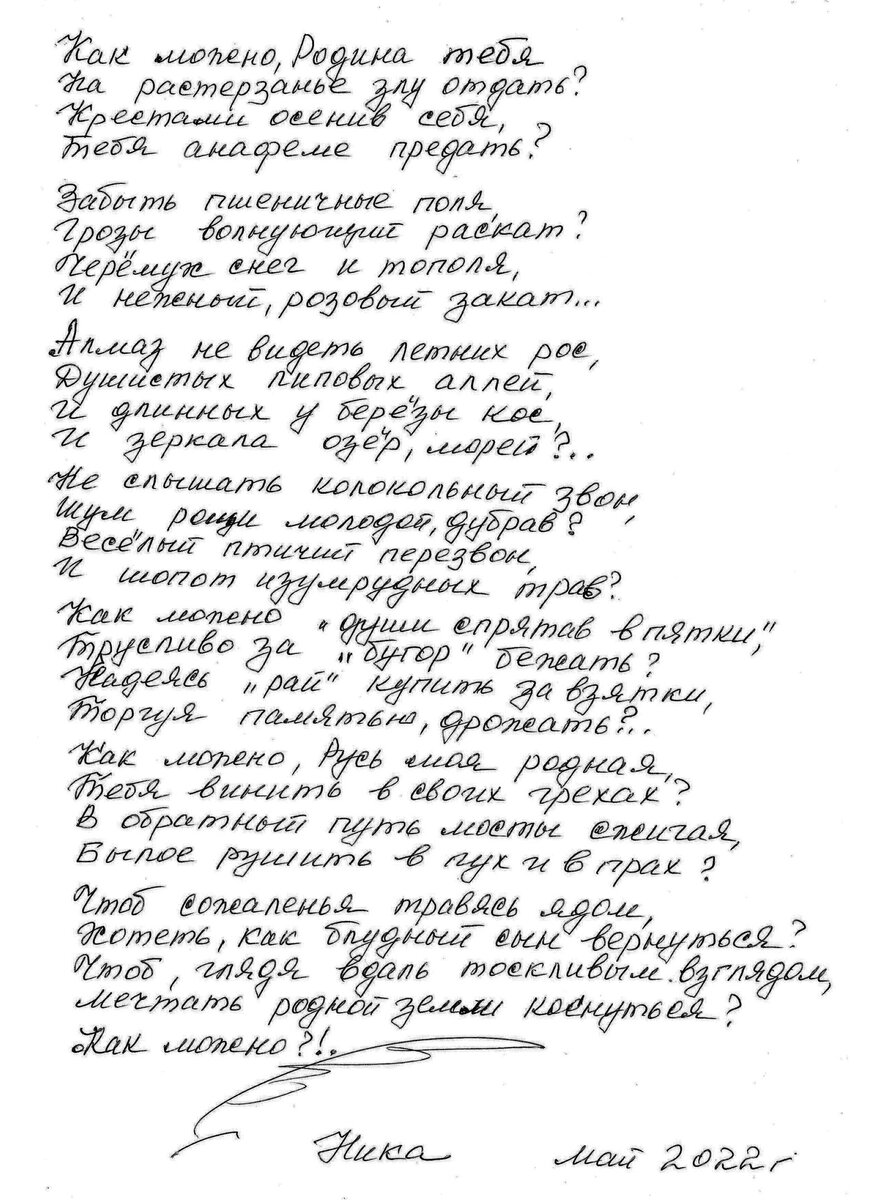 Как можно, Родина тебя
На растерзанье злу отдать?
Крестами осенив себя,
Тебя анафеме предать?
Забыть пшеничные поля,
Грозы волнующий раскат?
Черёмух снег и тополя,
И нежный, розовый закат...
Алмаз не видеть летних рос,
Душистых липовых аллей,
И длинных у берёзы кос,
И зеркала озёр, морей?..
Не слышать колокольный звон,
Шум рощи молодой, дубрав?
Весёлый птичий перезвон,
И шопот изумрудных трав?
Как можно "души спрятав в пятки",
Трусливо за "бугор" бежать?
Надеясь "рай" купить за взятки,
Торгуя памятью, дрожать?..
Как можно, Русь моя родная,
Тебя винить в своих грехах?
В обратный путь мосты сжигая,
Былое рушить в пух и в прах?
Чтоб сожаленья травясь ядом,
Хотеть, как блудный сын вернуться?
Чтоб, глядя вдаль тоскливым взглядом,
Мечтать родной земли коснуться?
Как можно?!.
Ника май 2022 г